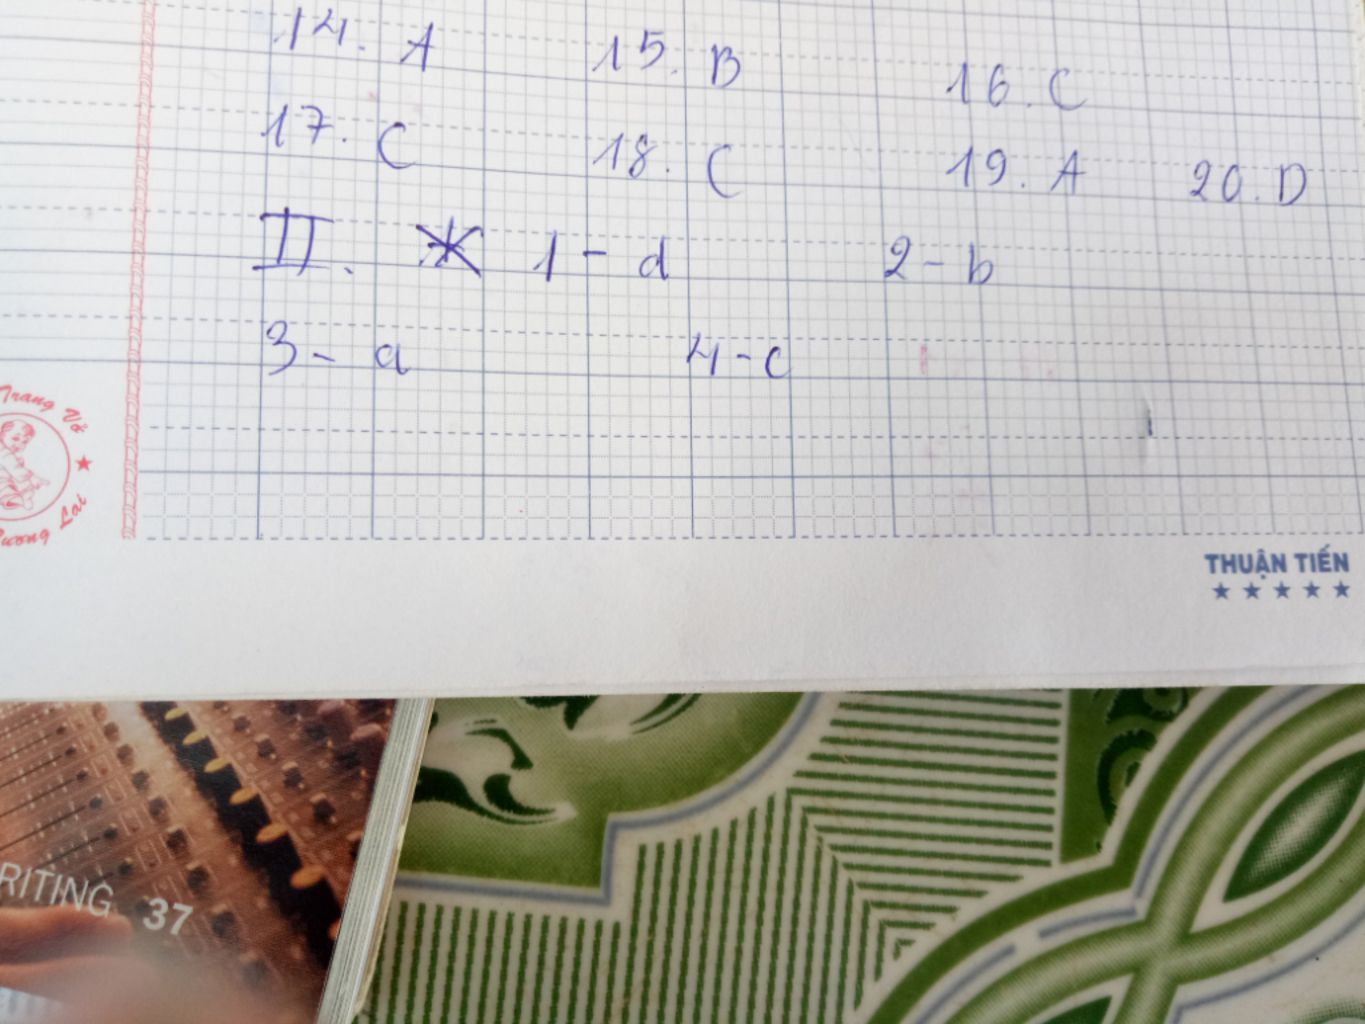 14. A 15. B 16. C
17. C 18. C 19. A 20. D
II. 1 - d 2 - b
3 - a 4 - c
Trang Vở
Lai
THUẬN TIẾN
RITING 37